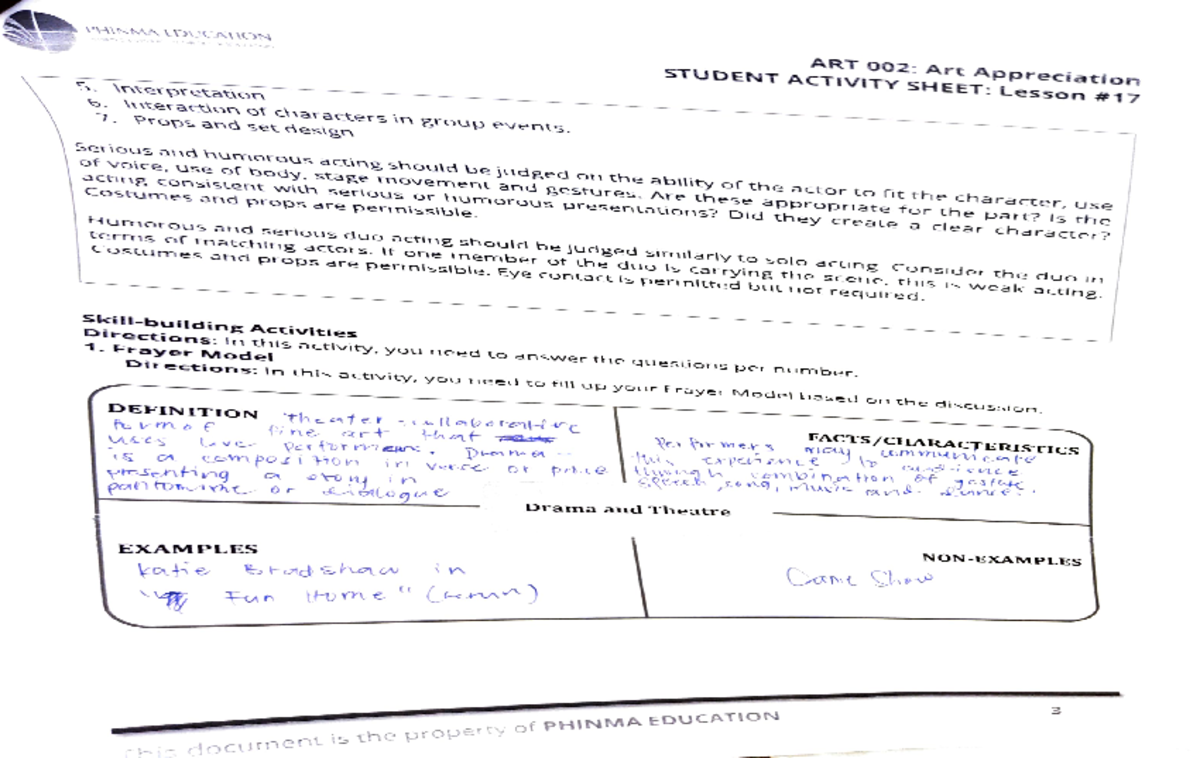 PHINMA EDUCATION
ART 002: Art Appreciation
STUDENT ACTIVITY SHEET: Lesson #17
5. Interpretation
6. Interaction of characters in group events.
7. Props and set design
Serious and humorous acting should be judged on the ability of the actor to fit the character, use
of voice, use of body, stage movement and gestures. Are these appropriate for the part? Is the
acting consistent with serious or humorous presentations? Did they create a clear character?
Costumes and props are permissible.
Humorous and serious duo acting should be judged similarly to solo acting. Consider the duo in
terms of matching actors. If one member of the duo is carrying the scene, this is weak acting.
Costumes and props are permissible. Eye contact is permitted but not required.
Skill-building Activities
Directions: In this activity, you need to answer the questions per number.
1. Frayer Model
Directions: In this activity, you need to fill up your Frayer Model based on the discussion.
DEFINITION Theater - collaborative
form of fine art that
uses performers. Drama -
is a composition in verse or prose
presenting a story in
pantomime or dialogue
FACTS/CHARACTERISTICS
Performers may communicate
this experience to audience
through combination of gesture,
speech, song, music and dance.
Drama and Theatre
EXAMPLES
Katie Bradshaw in
Fun Home"
NON-EXAMPLES
Game Show
This document is the property of PHINMA EDUCATION
3